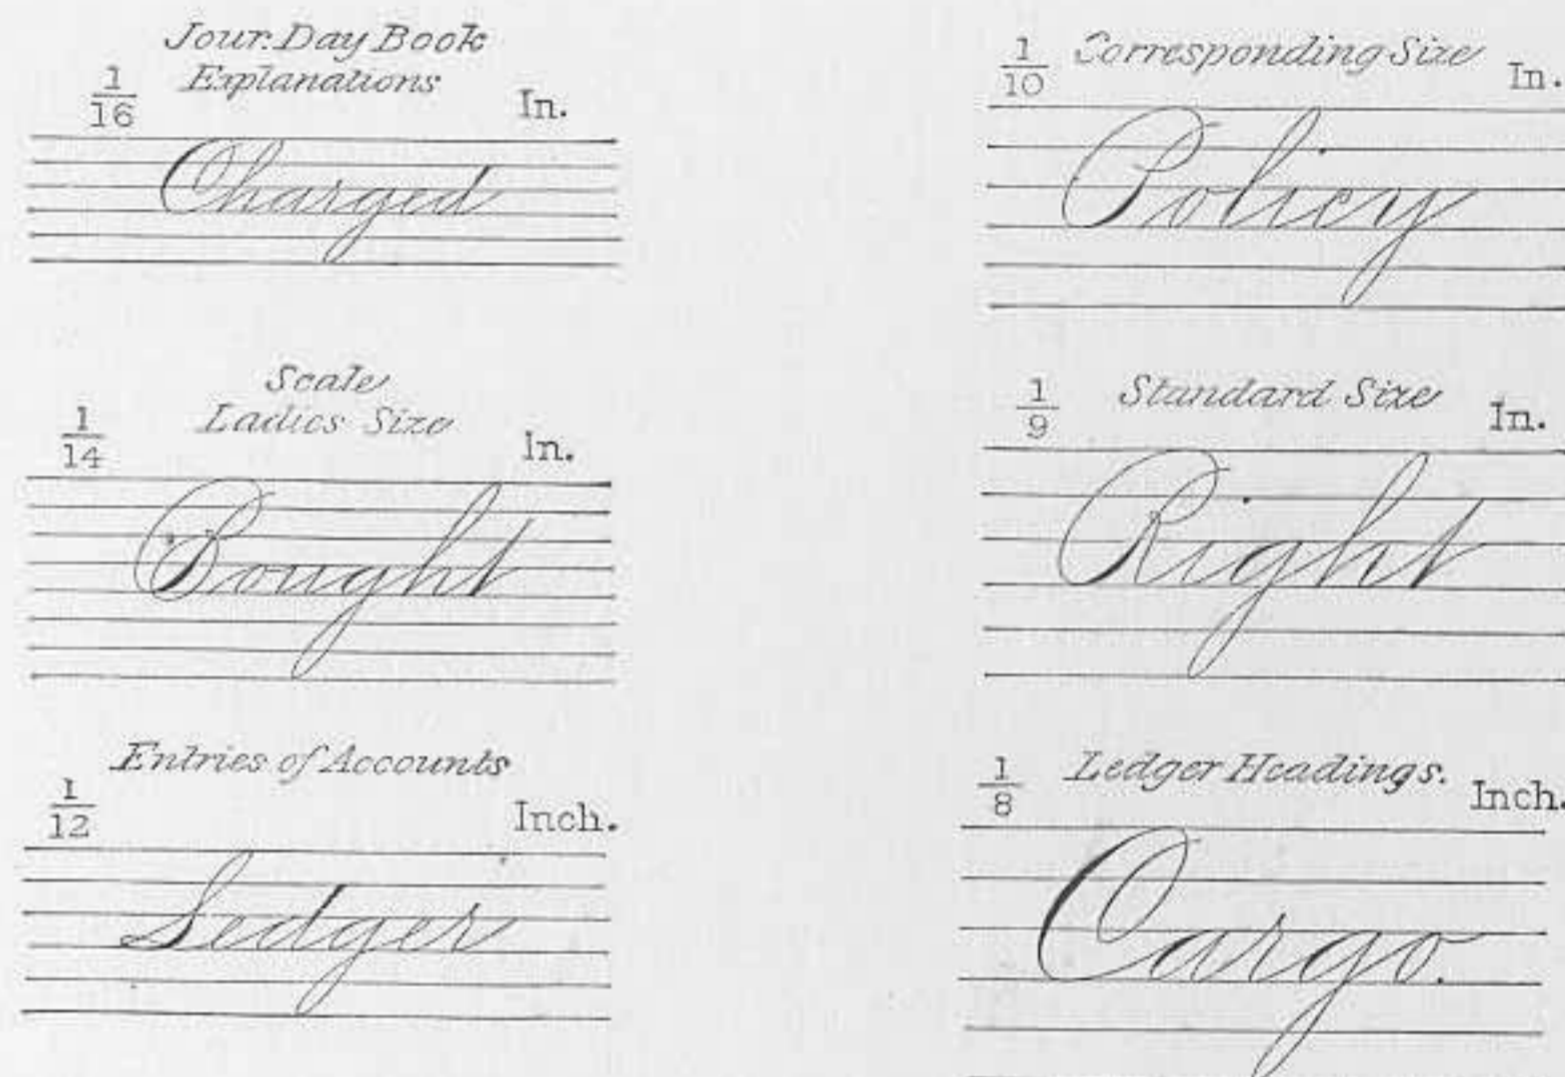 Jour. Day Book
Explanations
1/16 In.
Charged
Scale
Ladies Size
1/14 In.
Bought
Entries of Accounts
1/12 Inch.
Ledger
1/10 Corresponding Size In.
Policy
1/9 Standard Size In.
Right
1/8 Ledger Headings. Inch.
Cargo.